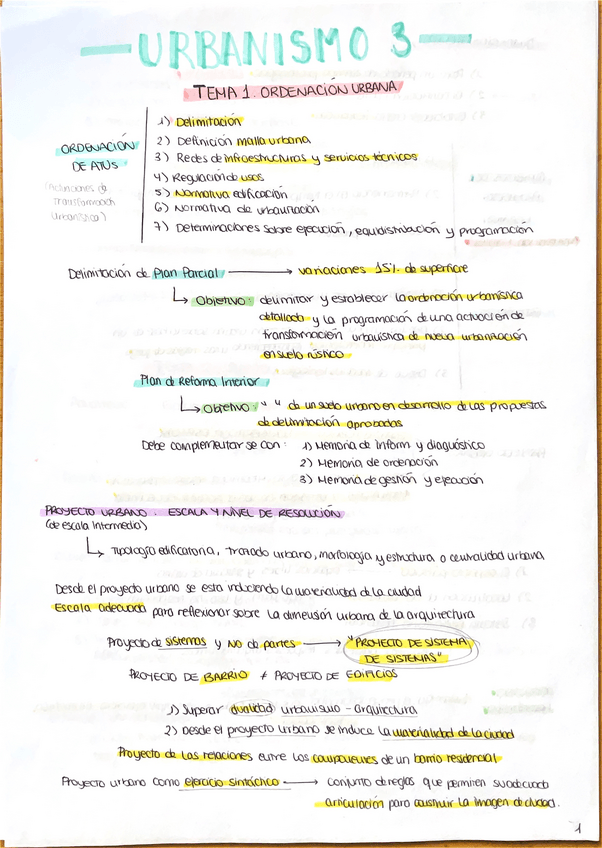 URBANISMO 3
TEMA 1. ORDENACIÓN URBANA
ORDENACIÓN
DE ATUs
(actuaciones de
transformación
urbanística)
1) Delimitación
2) Definición malla urbana
3) Redes de infraestructuras y servicios técnicos
4) Regulación de usos
5) Normativa edificación
6) Normativa de urbanización
7) Determinaciones sobre ejecución, equidistribución y programación
Delimitación de Plan Parcial → variaciones 15% de superficie
↳ Objetivo: delimitar y establecer la ordenación urbanística
detallada y la programación de una actuación de
transformación urbanística de nueva urbanización
en suelo rústico
Plan de Reforma Interior
↳ Objetivo: " " de un suelo urbano en desarrollo de las propuestas
de delimitación aprobadas
Debe complementarse con: 1) Memoria de inform y diagnóstico
2) Memoria de ordenación
3) Memoria de gestión y ejecución
PROYECTO URBANO. ESCALA Y NIVEL DE RESOLUCIÓN
(de escala intermedia)
↳ Tipología edificatoria, trazado urbano, morfología y estructura o centralidad urbana
Desde el proyecto urbano se esta induciendo la materialidad de la ciudad
Escala adecuada para reflexionar sobre la dimensión urbana de la arquitectura
Proyecto de sistemas y no de partes → "PROYECTO DE SISTEMA
DE SISTEMAS"
PROYECTO DE BARRIO ≠ PROYECTO DE EDIFICIOS
1) Superar dualidad urbanismo - arquitectura
2) Desde el proyecto urbano se induce la materialidad de la ciudad
Proyecto de las relaciones entre los componentes de un barrio residencial
Proyecto urbano como ejercicio sintáctico → conjunto de reglas que permiten su adecuada
articulación para construir la imagen de ciudad.
1